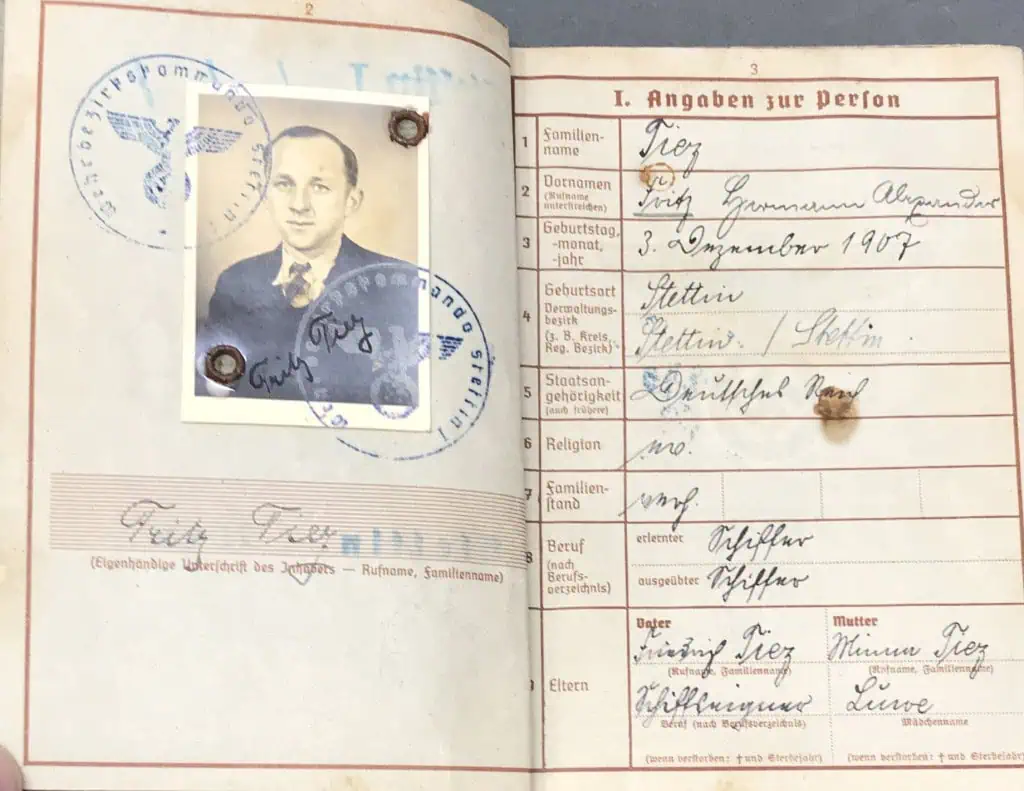 2
Wehrbezirkskommando Stettin I
Fritz Tiez
Wehrbezirkskommando Stettin I
Fritz Tiez
(Eigenhändige Unterschrift des Inhabers — Rufname, Familienname)
3
I. Angaben zur Person
1 Familien-
name
Tiez
2 Vornamen
(Rufname
unterstreichen)
Fritz Hermann Alexander
3 Geburtstag,
-monat,
-jahr
3. Dezember 1907
4 Geburtsort
Verwaltungs-
bezirk
(z. B. Kreis,
Reg. Bezirk)
Stettin
Stettin / Stettin
5 Staatsan-
gehörigkeit
(auch frühere)
Deutsches Reich
6 Religion
ev.
7 Familien-
stand
verh.
8 Beruf
(nach
Berufs-
verzeichnis)
erlernter Schiffer
ausgeübter Schiffer
Eltern
Vater
Friedrich Tiez
(Rufname, Familienname)
Schiffseigner
Beruf (nach Berufsverzeichnis)
(wenn verstorben: † und Sterbejahr)
Mutter
Minna Tiez
(Rufname, Familienname)
Lüwe
Mädchenname
(wenn verstorben: † und Sterbejahr)